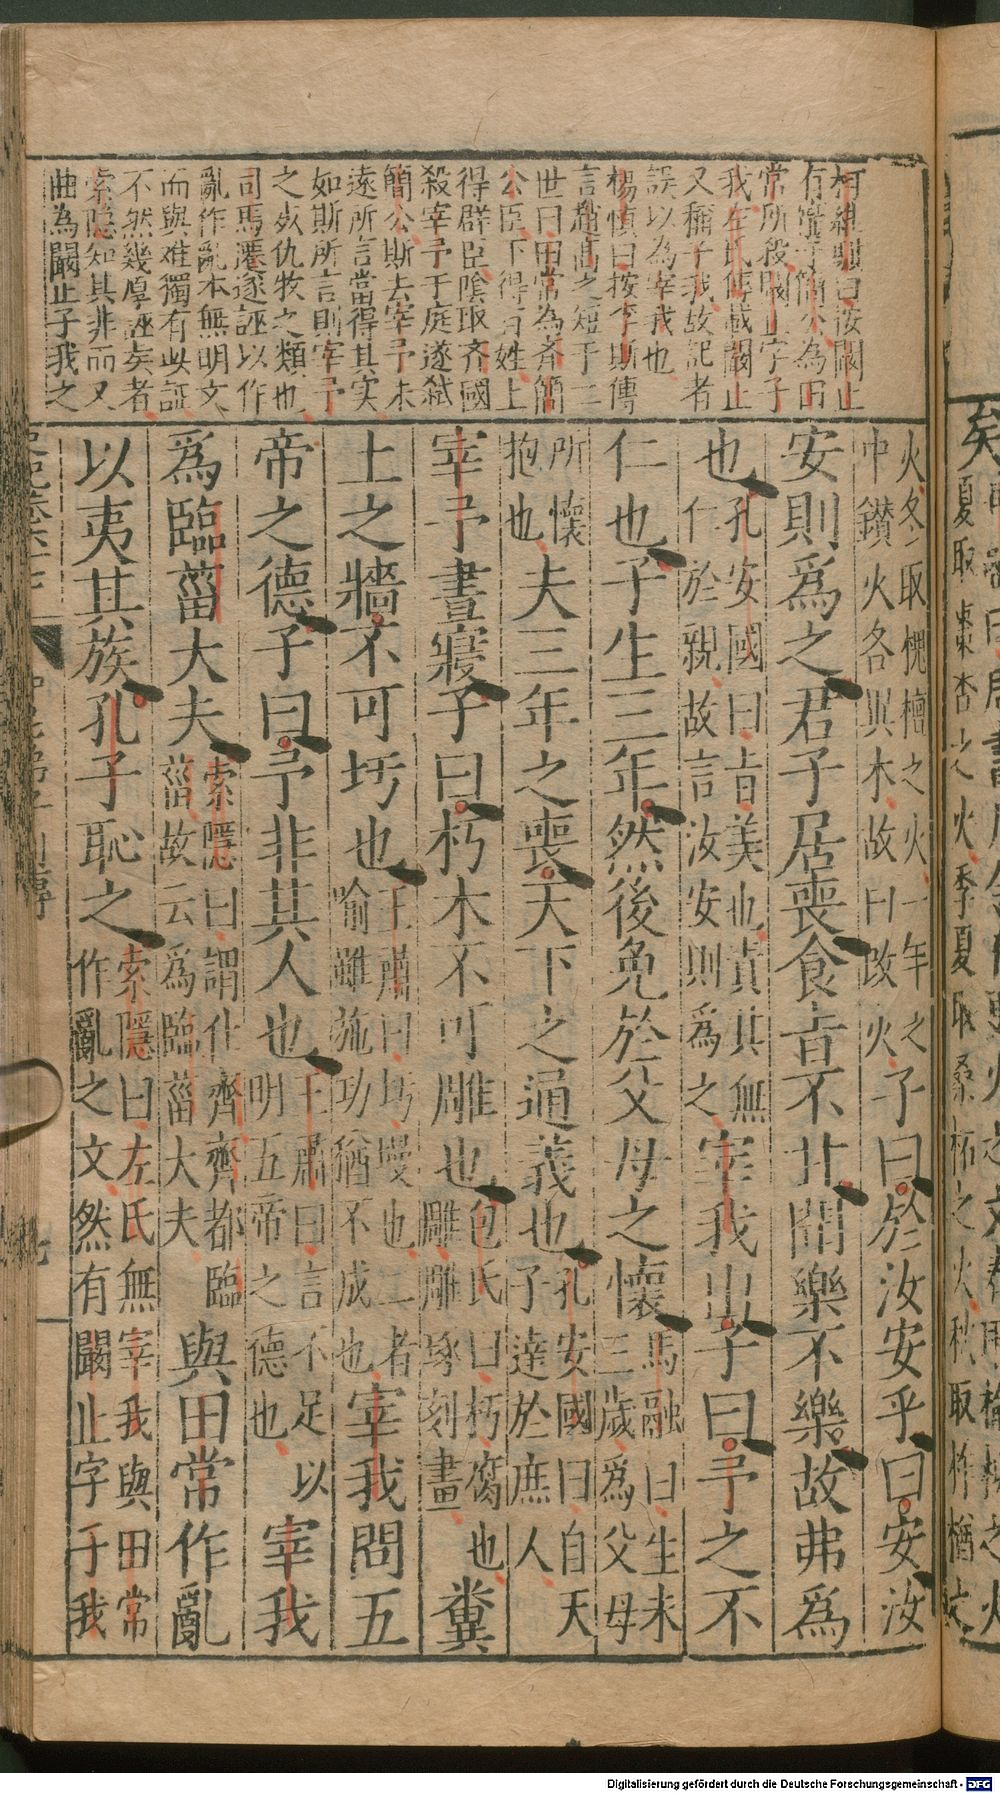 柯維騏曰按闞止
有寵于簡公為田
常所殺闞止字子
我左氏傳載闞止
又稱子我故記者
誤以為宰我也
楊慎曰按李斯傳
言趙高之短于二
世曰田常為斉簡
公臣下得百姓上
得群臣陰取斉國
殺宰予于庭遂弑
簡公斯去宰予未
遠所言當得其实
如斯所言則宰予
之死仇牧之類也
司馬遷遂誣以作
亂作亂本無明文
而與难獨有此証
不然幾厚誣矣者
索隱知其非而又
曲為闞止子我之
火冬取槐檀之火一年之
中鑽火各異木故曰改火
子曰於汝安乎曰安汝
安則爲之君子居喪食旨不甘聞樂不樂故弗爲
也
孔安國曰旨美也責其無
仁於親故言汝安則爲之
宰我出子曰予之不
仁也子生三年然後免於父母之懷
馬融曰生未
三歲爲父母
所懷
抱也
夫三年之喪天下之通義也
孔安國曰自天
子達於庶人
宰予晝寢子曰朽木不可雕也
包氏曰朽腐也
雕雕琢刻畫
糞
土之牆不可圬也
王肅曰圬墁也二者
喻雖施功猶不成也
宰我問五
帝之德子曰予非其人也
王肅曰言不足以
明五帝之德也
宰我
爲臨菑大夫
索隱曰謂仕齊齊都臨
菑故云爲臨菑大夫
與田常作亂
以夷其族孔子恥之
索隱曰左氏無宰我與田常
作亂之文然有闞止字子我
Digitalisierung gefördert durch die Deutsche Forschungsgemeinschaft - DFG